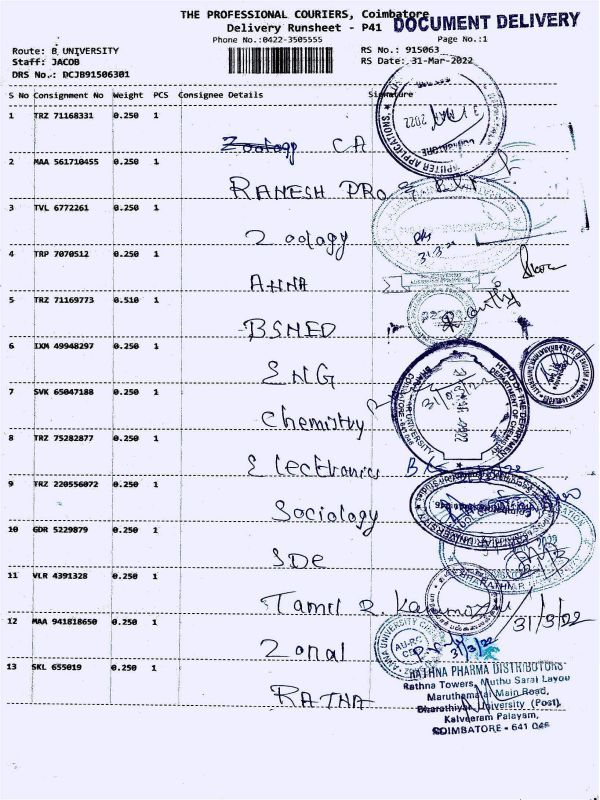 THE PROFESSIONAL COURIERS, Coimbatore
DOCUMENT DELIVERY
Delivery Runsheet - P41
Phone No.:0422-3505555
Page No.:1
Route: B, UNIVERSITY
RS No.: 915063
Staff: JACOB
RS Date: 31-Mar-2022
DRS No.: DCJB91506301
S No Consignment No Weight PCS Consignee Details Signature
1 TRZ 71168331 0.250 1
Zoology CA
2 MAA 561710455 0.250 1
RAMESH PRO
3 TVL 6772261 0.250 1
Zoology
31.3.22
4 TRP 7070512 0.250 1
ANNA
5 TRZ 71169773 0.510 1
BSMED
6 IXM 49948297 0.250 1
ENG
7 SVK 65047188 0.250 1
Chemistry
31/03/22
HEAD OF THE DEPARTMENT
DEPARTMENT OF CHEMISTRY
8 TRZ 75282877 0.250 1
Electronics
9 TRZ 220556072 0.250 1
Sociology
10 GDR 5229879 0.250 1
SDE
11 VLR 4391328 0.250 1
Tamil
31/3/22
12 MAA 941818650 0.250 1
Zonal
31/3/22
13 SKL 655019 0.250 1
RATNA
RATHNA PHARMA DISTRIBUTORS
Rathna Towers, Muthu Sarai Layou
Maruthamalai Main Road,
Bharathiyar University (Post),
Kalveeram Palayam,
COIMBATORE - 641 046